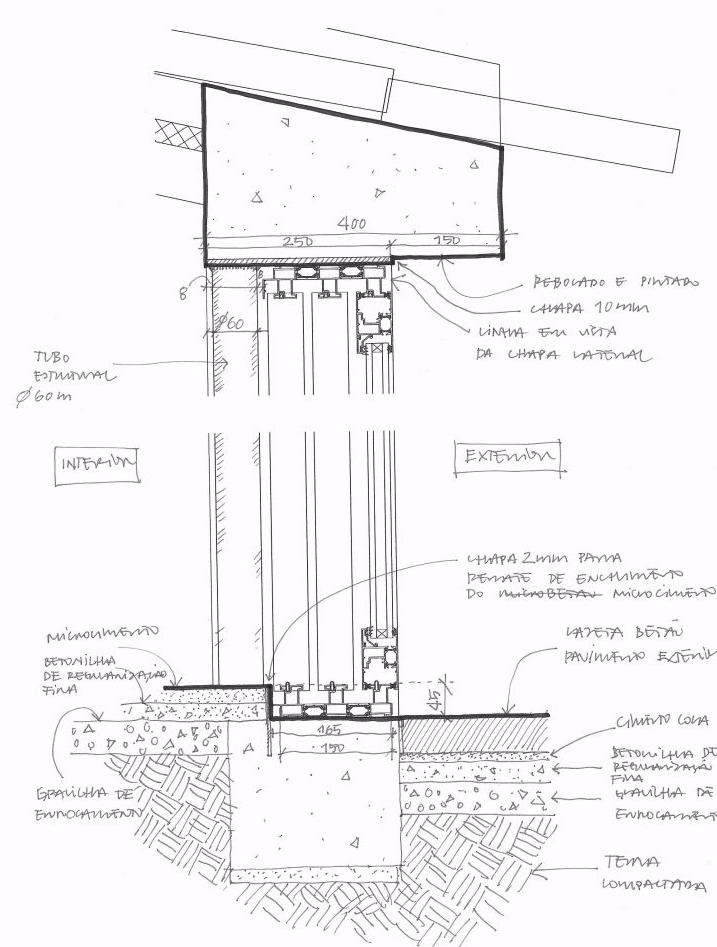 400
250
150
8
8
Ø60
REBOCADO E PINTADO
CHAPA 10MM
LINHA EM VISTA
DA CHAPA LATERAL
TUBO
ESTRUTURAL
Ø 60m
INTERIOR
EXTERIOR
CHAPA 2MM PARA
REMATE DE ENCHIMENTO
DO MICROBETAO MICROCIMENTO
MICROCIMENTO
BETONILHA
DE REGULARIZAÇÃO
FINA
LAJETA BETÃO
PAVIMENTO EXTERIOR
45
165
150
CIMENTO COLA
BETONILHA DE
REGULARIZAÇÃO
FINA
GRAVILHA DE
ENROCAMENTO
GRAVILHA DE
ENROCAMENTO
TERRA
COMPACTADA